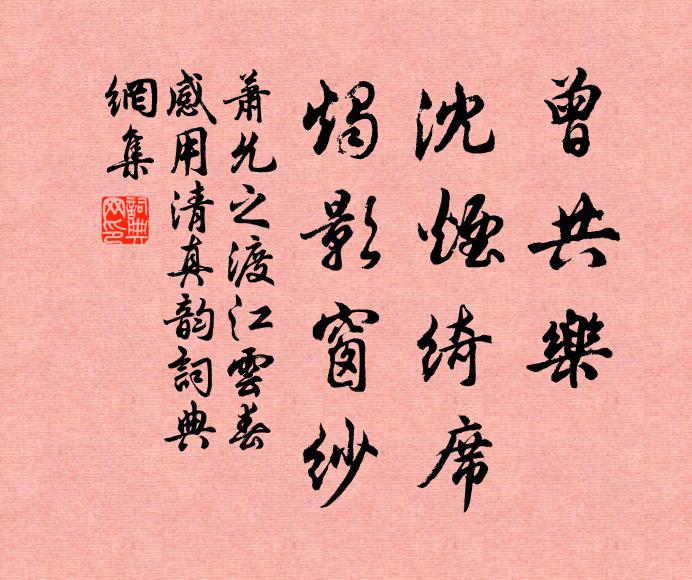 曾共樂
沈煙綺席
燭影窗紗
蕭允之渡江雲春
感用清真韵詞典
網集
詞典網印